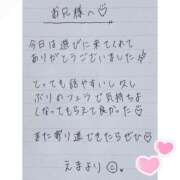 お兄様へ♡
今日は遊びに来てくれて
ありがとうございました
とっても話やすいし久し
ぶりのフェラで気持ちよ
くなってもらえて良かった♡
また寄り道できたらぜひ
えまより